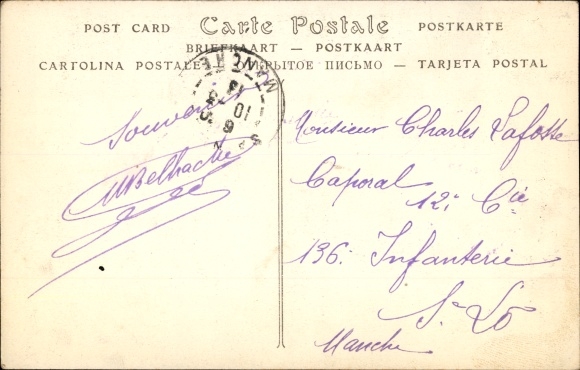 POST CARD Carte Postale POSTKARTE
BRIEFKAART — POSTKAART
CARTOLINA POSTALE — ОТКРЫТОЕ ПИСЬМО — TARJETA POSTAL
MANCHE
Souvenir
MBelhache
Monsieur Charles Lafosse
Caporal 12: Cie
136: Infanterie
St Lô
Manche